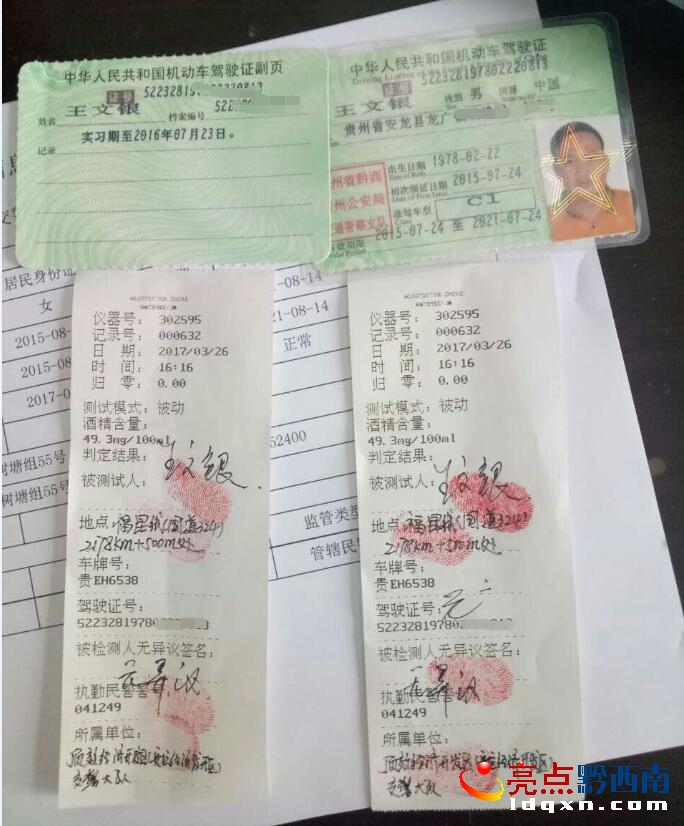 中华人民共和国机动车驾驶证副页
证号
姓名 王文银 档案编号 522
记录 实习期至2016年07月23日。
中华人民共和国机动车驾驶证
证号
王文银 性别 男 国籍 中国
贵州省安龙县龙广
出生日期 1978-02-22
Date of Birth
初次领证日期 2015-07-24
准驾车型 C1
Class
2015-07-24 至 2021-07-24
州省黔西
州公安局
通警察支队
居民身份证
女
-08-14
2015-08-
21-08-14
2015-
正常
2017-0
52400
树塘组55号
树塘组55号
监管类型
管辖民警
仪器号: 302595
记录号: 000632
日 期: 2017/03/26
时 间: 16:16
归 零: 0.00
测试模式: 被动
酒精含量:
49.3mg/100ml
判定结果:
被测试人: 王文银
地点: 福昆线(国道324)
2178km+500m处
车牌号:
贵EH6538
驾驶证号:
52232819780
被检测人无异议签名:
执勤民警
041249
所属单位:
交警大队
仪器号: 302595
记录号: 000632
日 期: 2017/03/26
时 间: 16:16
归 零: 0.00
测试模式: 被动
酒精含量:
49.3mg/100ml
判定结果:
被测试人: 王文银
地点: 福昆线(国道324)
2178km+500m处
车牌号:
贵EH6538
驾驶证号:
52232819780
被检测人无异议签名:
执勤民警
041249
所属单位:
交警大队
亮点黔西南
ldqxn.com